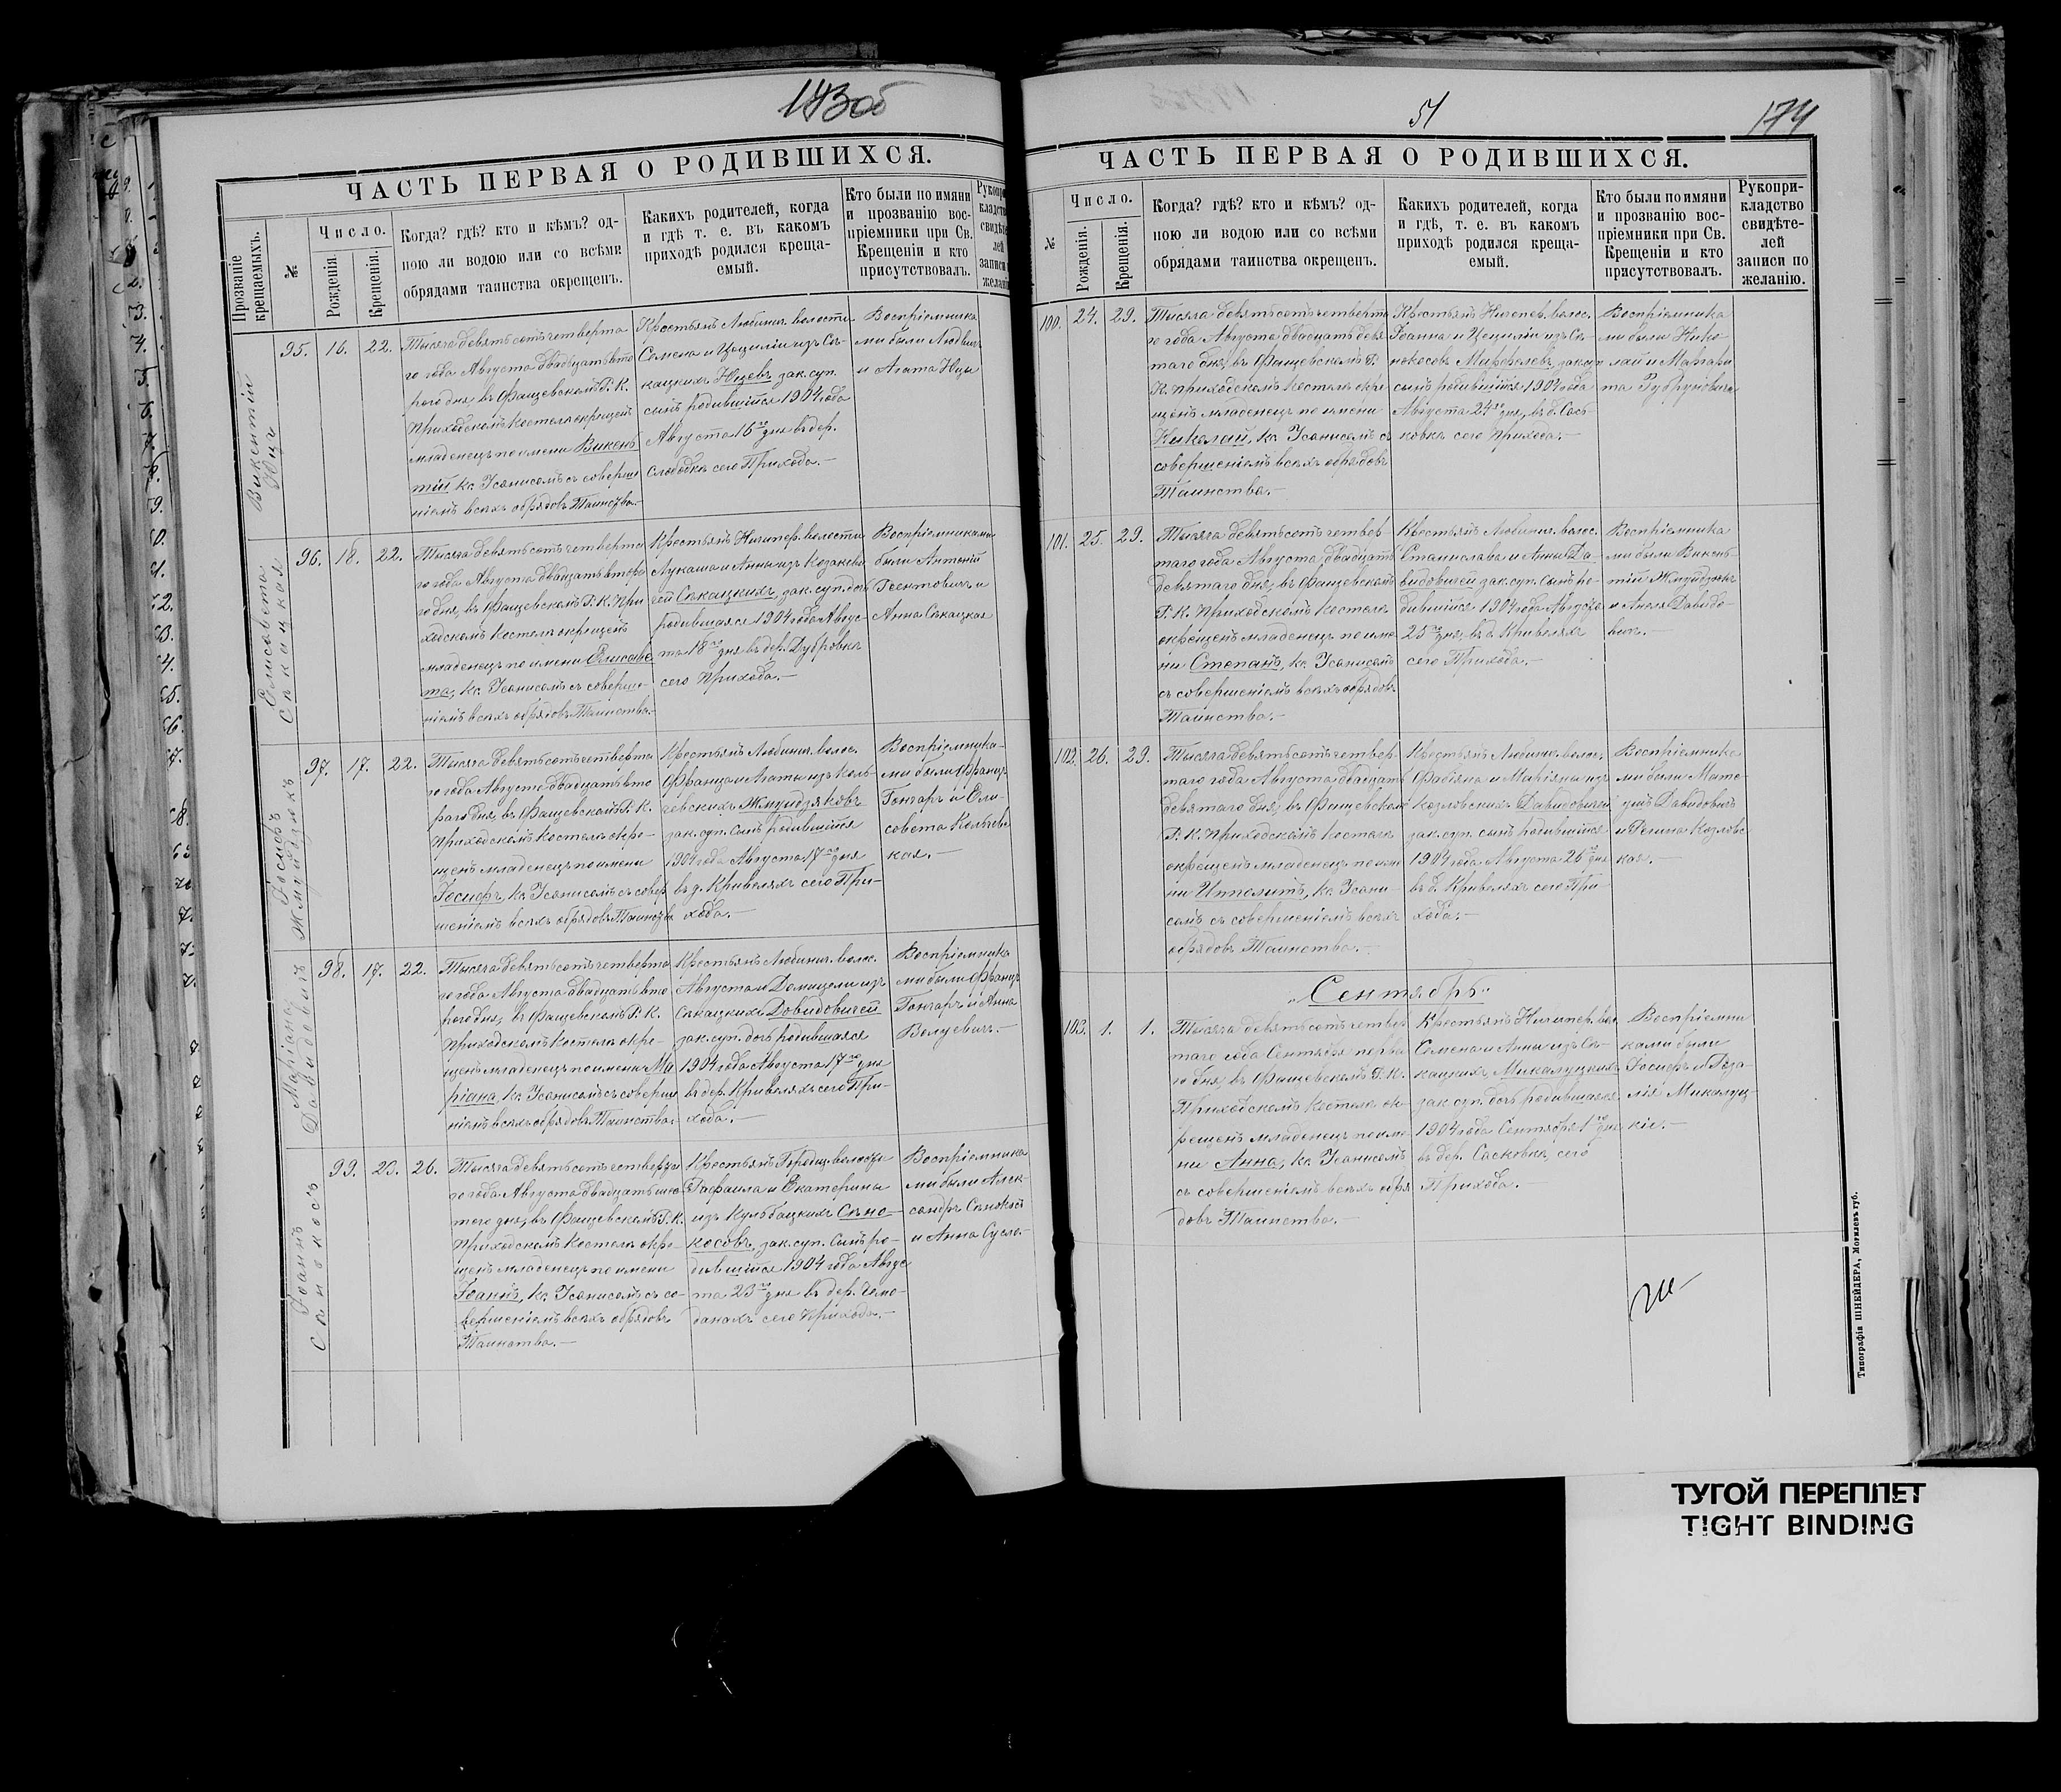 173об
ЧАСТЬ ПЕРВАЯ О РОДИВШИХСЯ.
Прозваніе крещаемыхъ.
№
Число.
Рожденія.
Крещенія.
Когда? гдѣ? кто и кѣмъ? од-
ною ли водою или со всѣми
обрядами таинства окрещенъ.
Какихъ родителей, когда
и гдѣ т. е. въ какомъ
приходѣ родился креща-
емый.
Кто были по имяни
и прозванію вос-
пріемники при Св.
Крещеніи и кто
присутствовалъ.
Викентій
Юцъ
95. 16. 22.
Тысяча девятьсотъ четверта
го года Августа двадцать вто
рого дня, въ Фащевскомъ Р. К.
Приходскомъ костелѣ окрещенъ
младенецъ по имени Викен
тій кс. Усанисомъ съ соверше
ніемъ всѣхъ обрядовъ Таинства.–
Крестьянъ Любинич. волости
Семена и Цециліи изъ Сѣ-
кацкихъ Юцевъ зак. суп.
сынъ родившійся 1904 года
Августа 16го дня въ дер.
Слободкѣ сего Прихода.–
Воспріемника
ми были Людвигъ
и Агата Юцы
Елисавета
Сѣкацкая
96. 18. 22.
Тысяча девятьсотъ четверта
го года Августа двадцать второ
го дня, въ Фащевскомъ Р. К. При
ходскомъ костелѣ окрещенъ
младенецъ по имени Елисаве
та, кс. Усанисомъ съ соверше-
ніемъ всѣхъ обрядовъ Таинства.–
Крестьянъ Ничипер. волости
Лукаша и Анны изъ Козакеви
чей Сѣкацкихъ, зак. суп. дочь
родившаяся 1904 года Авгус-
та 18го дня въ дер. Дубровкѣ
сего Прихода.–
Воспріемниками
были Антоній
и
Анна Сѣкацкая
Іосифъ
Жмуйдзякъ
97. 17. 22.
Тысяча девятьсотъ четверта
го года Августа двадцать вто
рого дня, въ Фащевскомъ Р. К.
Приходскомъ костелѣ окре-
щенъ младенецъ по имени
Іосифъ, кс. Усанисомъ съ совер
шеніемъ всѣхъ обрядовъ Таинства
Крестьянъ Любинич. волос.
Франца и Агаты изъ Коль-
чевскихъ Жмуйдзяковъ
зак. суп. сынъ родившійся
1904 года Августа 17го дня
въ д. Кривеляхъ сего При-
хода.–
Воспріемника-
ми были Францъ
Гончаръ и Ели-
савета Кольчевс
кая.–
Маріана
Давидовичъ
98. 17. 22.
Тысяча девятьсотъ четверта
го года Августа двадцать вто
рого дня, въ Фащевскомъ Р. К.
Приходскомъ костелѣ окре-
щенъ младенецъ по имени Ма
ріана, кс. Усанисомъ съ соверше
ніемъ всѣхъ обрядовъ Таинства.
Крестьянъ Любинич. волос.
Августа и Домицели изъ
Сѣкацкихъ Довидовичей
зак. суп. дочь родившаяся
1904 года Августа 17го дня
въ дер. Кривеляхъ сего При-
хода.–
Воспріемника
ми были Францъ
Гончаръ и Анна
Велуевичъ.–
Іоаннъ
Сѣнокосъ
99. 23. 26.
Тысяча девятьсотъ четверта
го года Августа двадцать шес
того дня, въ Фащевскомъ Р. К.
Приходскомъ костелѣ окре-
щенъ младенецъ по имени
Іоаннъ, кс. Усанисомъ съ со-
вершеніемъ всѣхъ обрядовъ
Таинства.–
Крестьянъ Городищ. волости
Рафаила и Екатерины
изъ Кульбацкихъ Сѣно-
косовъ, зак. суп. сынъ ро-
дившійся 1904 года Авгус
та 23го дня въ дер. Чемо-
данахъ сего Прихода.–
Воспріемника
ми были Алек-
сандръ Сѣнокосъ
и Анна
51
174
ЧАСТЬ ПЕРВАЯ О РОДИВШИХСЯ.
№
Число.
Рожденія.
Крещенія.
Когда? гдѣ? кто и кѣмъ? од-
ною ли водою или со всѣми
обрядами таинства окрещенъ.
Какихъ родителей, когда
и гдѣ, т. е. въ какомъ
приходѣ родился креща-
емый.
Кто были по имяни
и прозванію вос-
пріемники при Св.
Крещеніи и кто
присутствовалъ.
Рукопри-
кладство
свидѣте-
лей
записи по
желанію.
100. 24. 29.
Тысяча девятьсотъ четверта
го года Августа двадцать девя
таго дня, въ Фащевскомъ Р.
К. Приходскомъ костелѣ окре
щенъ младенецъ по имени
Николай, кс. Усанисомъ съ
совершеніемъ всѣхъ обрядовъ
Таинства.–
Крестьянъ Ничипер. волос.
Іоанна и Цециліи изъ Сѣ-
нокосовъ зак. суп
сынъ родившійся 1904 года
Августа 24го дня, въ д. Сась-
ковкѣ сего Прихода.–
Воспріемника
ми были Нико-
лай и Маргари
та
101. 25. 29.
Тысяча девятьсотъ четвер
таго года Августа двадцать
девятаго дня, въ Фащевскомъ
Р. К. Приходскомъ костелѣ
окрещенъ младенецъ по име
ни Степанъ, кс. Усанисомъ
съ совершеніемъ всѣхъ обрядовъ
Таинства.–
Крестьянъ Любинич. волос.
Станислава и Анны Да-
видовичей зак. суп. сынъ ро-
дившійся 1904 года Августа
25го дня, въ д. Кривеляхъ
сего Прихода.–
Воспріемника
ми были Викен-
тій Жмуйдзякъ
и Анеля Давидо-
вичъ.–
102. 26. 29.
Тысяча девятьсотъ четвер-
таго года Августа двадцать
девятаго дня, въ Фащевскомъ
Р. К. Приходскомъ костелѣ
окрещенъ младенецъ по име
ни Ипполитъ, кс. Усани-
сомъ съ совершеніемъ всѣхъ
обрядовъ Таинства.–
Крестьянъ Любинич. волос.
Фабіяна и Маріяны изъ
Козловскихъ Давидовичей
зак. суп. сынъ родившійся
1904 года Августа 26го дня
въ д. Кривеляхъ сего При-
хода.–
Воспріемника
ми были Мате-
ушъ Давидовичъ
и Козловс
кая.–
„Сентябрь“
103. 1. 1.
Тысяча девятьсотъ четвер
таго года Сентября перва
го дня, въ Фащевскомъ Р. К.
Приходскомъ костелѣ ок-
рещенъ младенецъ по име
ни Анна, кс. Усанисомъ
съ совершеніемъ всѣхъ обря
довъ Таинства.–
Крестьянъ Ничипер. вол.
Семена и Анны изъ Сѣ-
кацкихъ Микалуцкихъ
зак. суп. дочь родившаяся
1904 года Сентября 1го дня
въ дер. Сасковкѣ, сего
Прихода.–
Воспріемни
ками были
Іосифъ и Роза-
лія Микалуц-
кіе.–
Типографія ШНЕЙДЕРА, Могилевъ губ.
ТУГОЙ ПЕРЕПЛЕТ
TIGHT BINDING